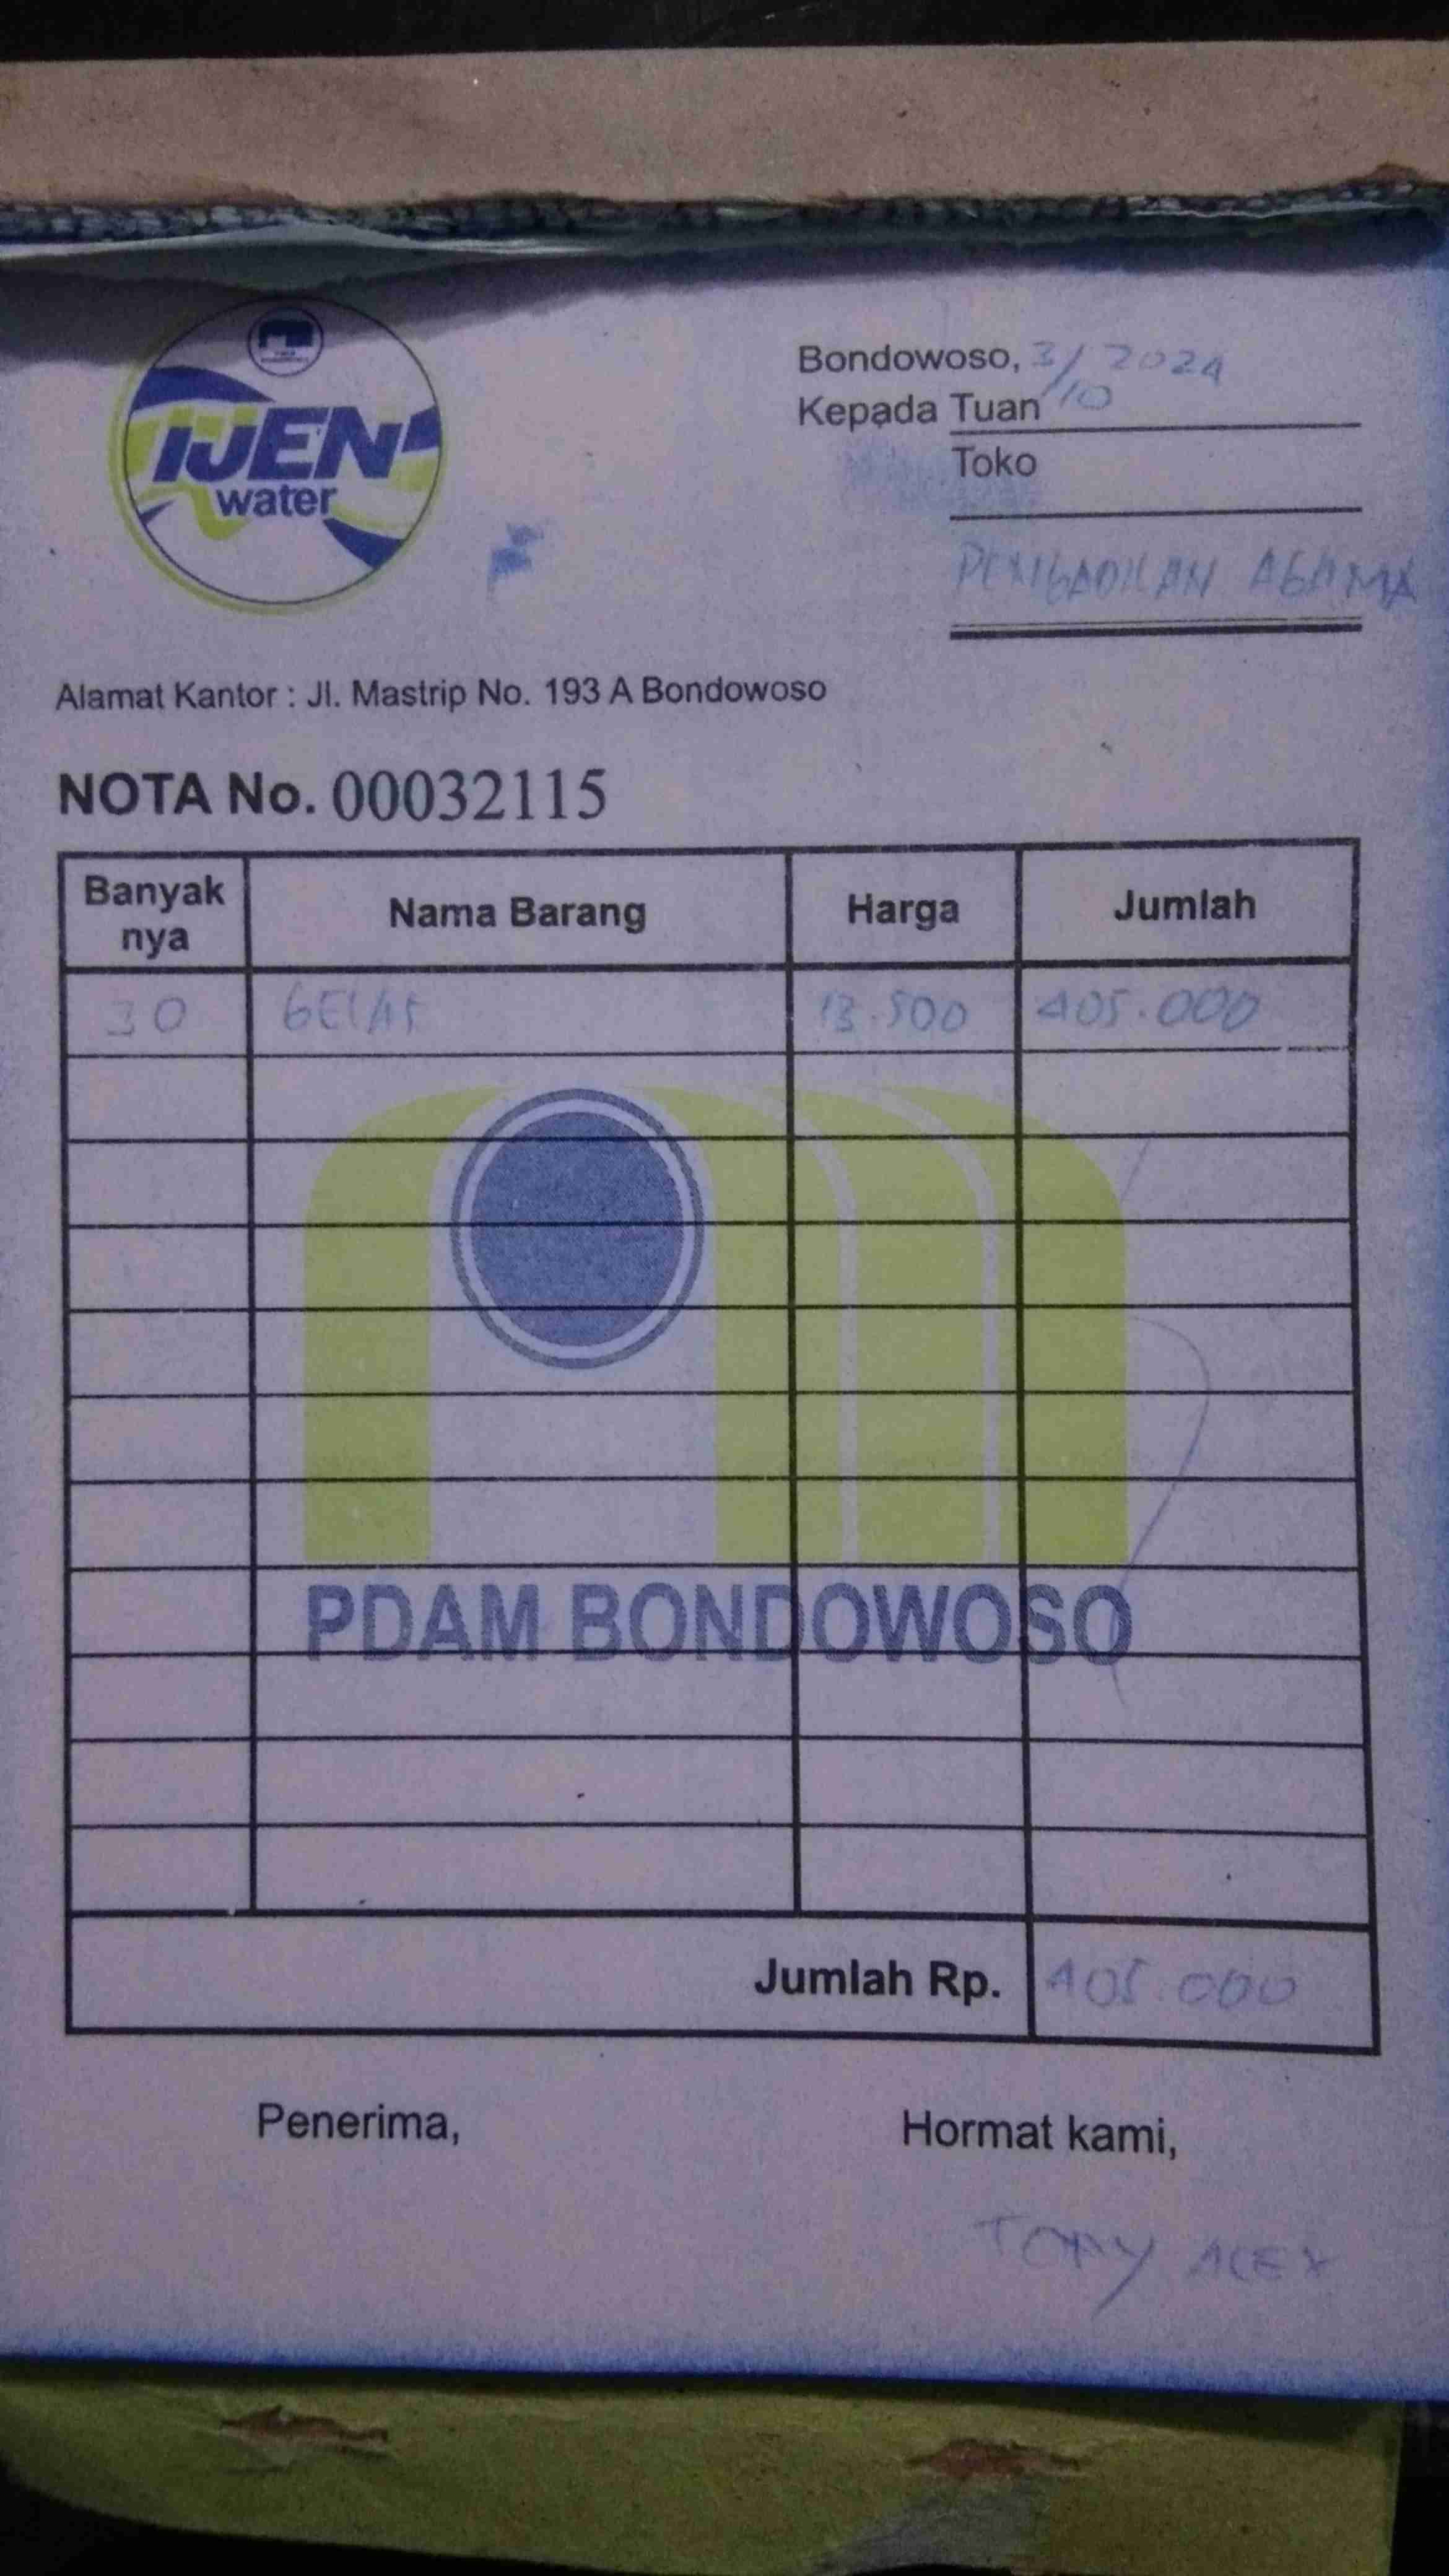 IJEN
water
Bondowoso, 3/10 2024
Kepada Tuan
Toko
PENGADILAN AGAMA
Alamat Kantor : Jl. Mastrip No. 193 A Bondowoso
NOTA No. 00032115
Banyak nya Nama Barang Harga Jumlah
30 GELAS 13.500 405.000
PDAM BONDOWOSO
Jumlah Rp. 405.000
Penerima, Hormat kami,
TONY ALEX